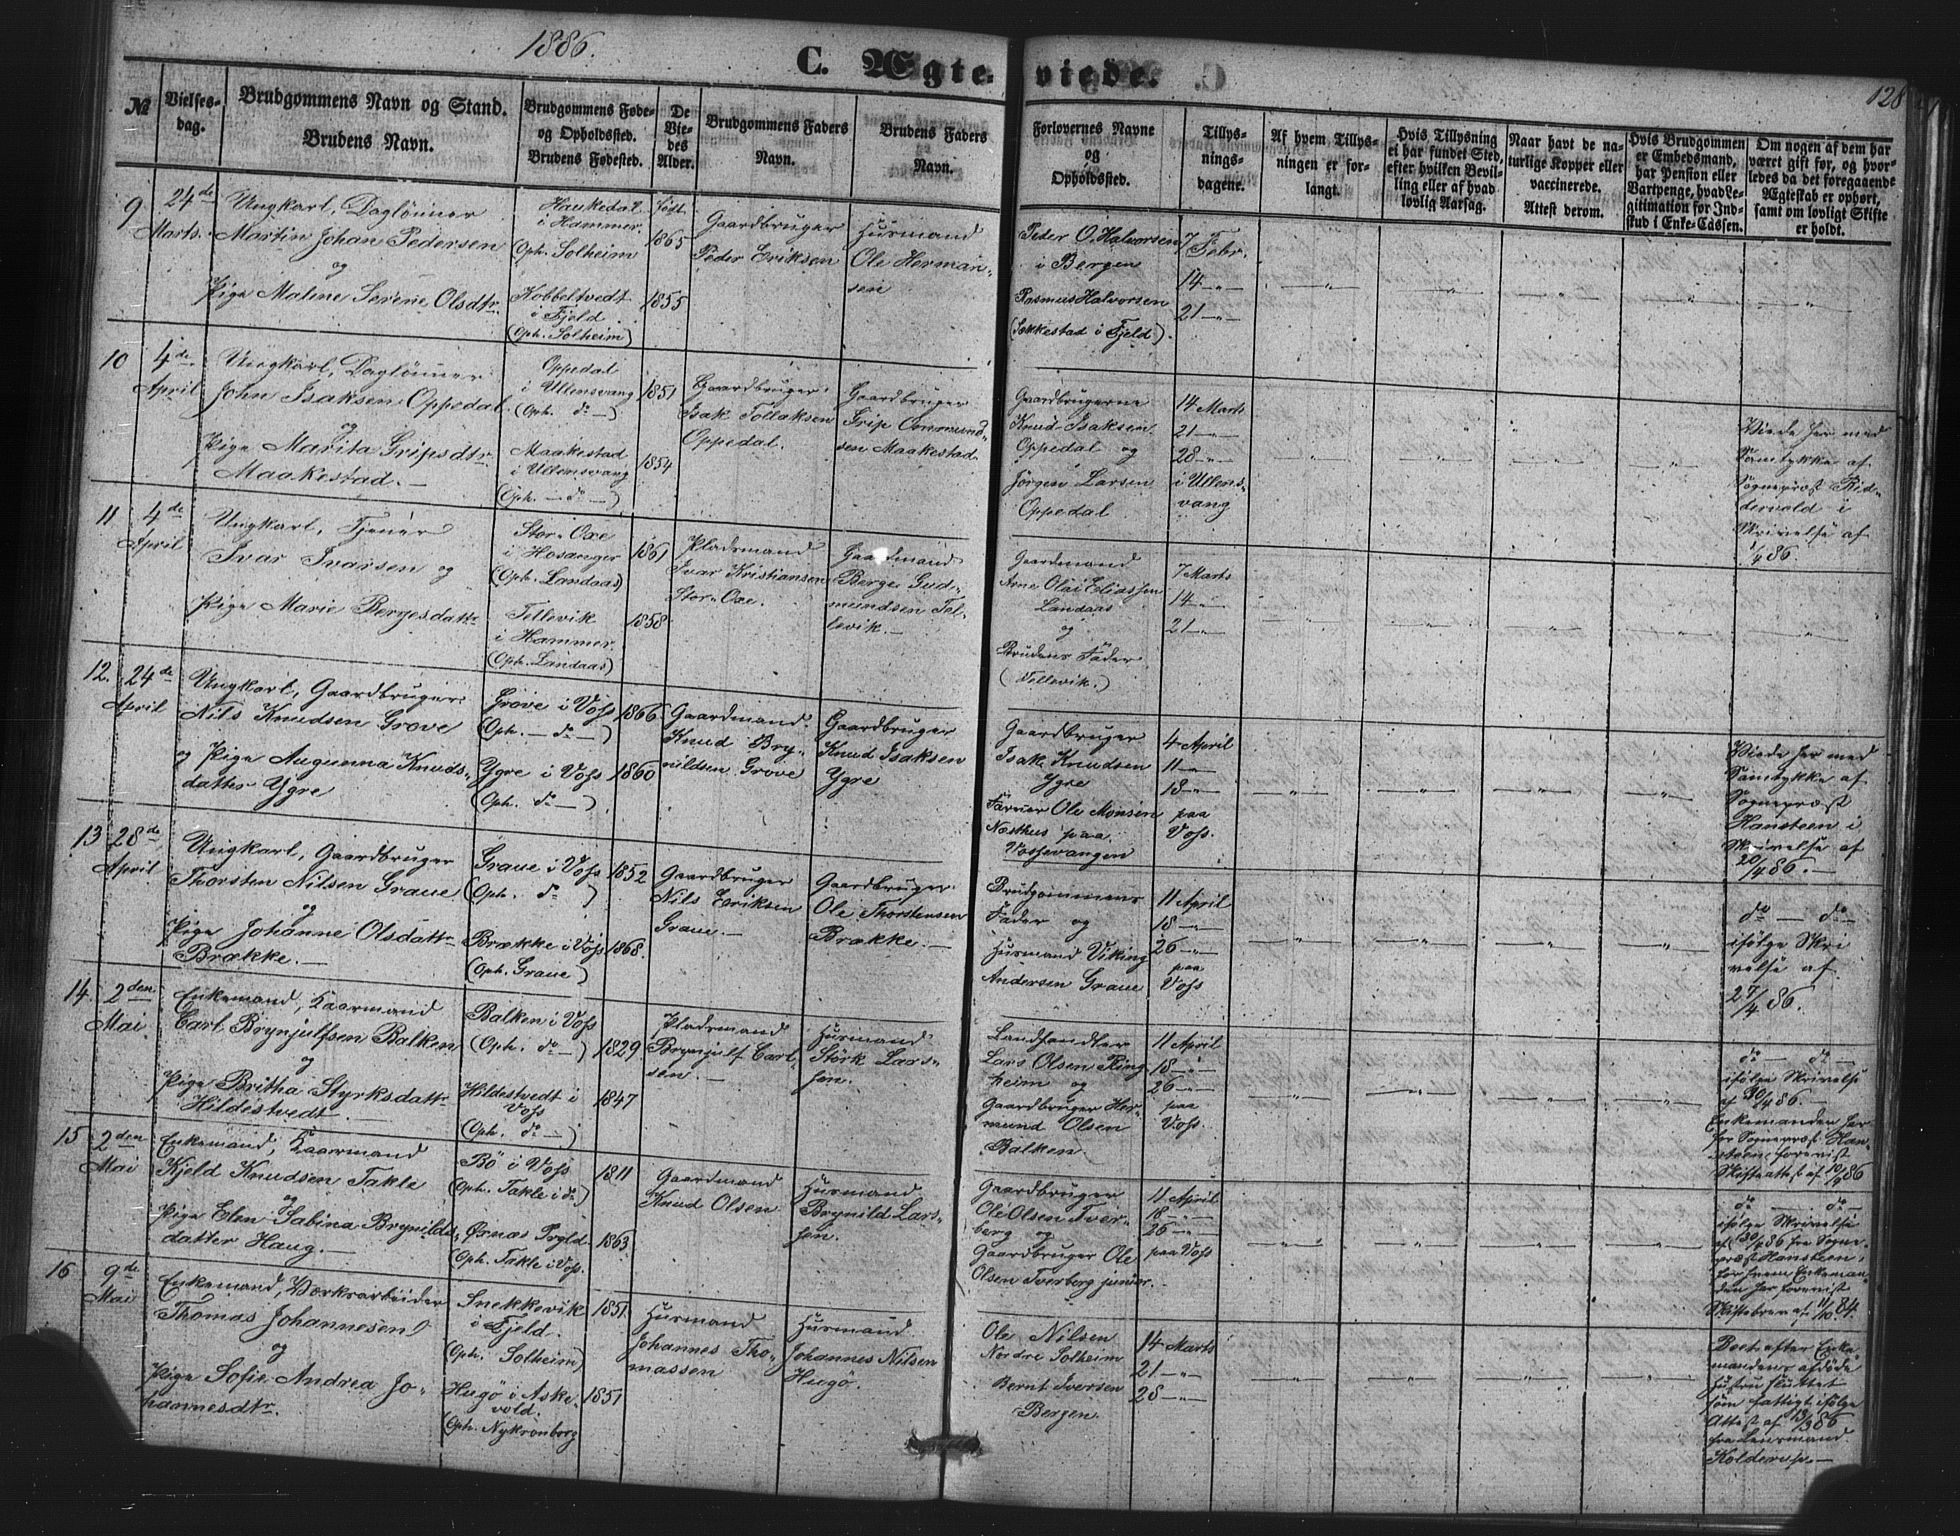 1886.
C. Ægteviede.
128
No
Vielsesdag.
Brudgommens Navn og Stand.
Brudens Navn.
Brudgommens Føde-
og Opholdssted.
Brudens Fødested.
De Viedes Alder.
Brudgommens Faders
Navn.
Brudens Faders
Navn.
Forlovernes Navne
og
Opholdssted.
Tillysningsdagene.
Af hvem Tillysningen er forlangt.
Hvis Tillysning
ei har fundet Sted,
efter hvilken Bevilling eller af hvad
lovlig Aarsag.
Naar havt de naturlige Kopper eller
vaccinerede.
Attest derom.
Hvis Brudgommen
er Embedsmand,
har Pension eller
Vartpenge, hvad Legitimation for Indskud i Enke-Cassen.
Om nogen af dem har
været gift før, og hvorledes da det foregaaende
Ægteskab er ophørt,
samt om lovligt Skifte
er holdt.
9
24de
Marts.
Ungkarl, Daglønner
Martin Johan Pedersen
og
Pige Malene Serene Olsdtr.
Haukedal
i Hammer.
Oph. Solheim
Kobbeltvedt
i Fjeld
(Oph. Solheim)
Født
1865
1855
Gaardbruger
Peder Eriksen
Husmand
Ole Herman-
sen
Peder O. Halvorsen
i Bergen
Rasmus Halvorsen
(Sekkestad i Fjeld).
7 Febr.
14 —"—
21 —"—
10
4de
April
Ungkarl, Daglønner
John Isaksen Oppedal
og
Pige Marita Gripsdtr.
Maakestad. —
Oppedal
i Ullensvang
(Oph. do —)
Maakestad
i Ullensvang
(Oph. — do —)
1851
1854
Gaardbruger
Isak Tollaksen
Oppedal.
Gaardbruger
Grip Ommund-
sen Maakestad
Gaardbrugerne
Knud Isaksen
Oppedal og
Jörgen Larsen
Oppedal
14 Marts
21 —"—
28 —"—
i Ullens-
vang
Viede her med
Samtykke af
Sognepræst Rid-
dervold i
Skrivelse af
1/4 86.
11
4de
April
Ungkarl, Tjener
Ivar Ivarsen og
Pige Marie Bergesdattr
Stor-Oxe
i Hosanger
(Oph. Landaas)
Tellevik
i Hammer.
(Oph. Landaas)
1861
1858
Pladsmand
Ivar Kristiansen
Stor-Oxe.
Gaardmand
Berge Gud-
mundsen Tel-
levik. —
Gaardmand
Arne Olai Eliassen
Landaas
og
Brudens Fader
(Tellevik.)
7 Marts
14 —"—
21 —"—
12.
24de
April
Ungkarl, Gaardbruger
Nils Knudsen Grove
og Pige Augunna Knuds-
datter Ygre
Grove i Voss
(Oph. — do —)
Ygre i Voss
(Oph. do —)
1866
1860
Gaardmand
Knud Bry-
nildsen Grove
Gaardbruger
Knud Isaksen
Ygre
Gaardbruger
Isak Knudsen
Ygre
Farver Ole Monsen
Næsthus paa
Vossevangen
4 April
11 —"—
18 —"—
paa
Voss.
Viede her med
Samtykke af
Sognepræst
Hansteen i
Skrivelse af
20/4 86. —
13
28de
April
Ungkarl, Gaardbruger
Thorsten Nilsen Graue
og
Pige Johanne Olsdattr
Brække. —
Graue i Voss
(Oph. do)
Brække i Voss
(Oph. Graue)
1852
1868.
Gaardbruger
Nils Eriksen
Graue. —
Gaardbruger
Ole Thorstensen
Brække. —
Brudgommens
Fader og
Husmand Viking
Andersen Graue
11 April
18 —"—
26 —"—
paa
Voss
do — do —
ifølge Skri
velse af
27/4 86.
14.
2den
Mai
Enkemand, Kaarmand
Carl Brynjulfsen Balken
og
Pige Britha Styrksdattr
Hildestvedt
Balken i Voss
(Oph. do —)
Hildestvedt i
Voss
(Oph. do —)
1829
1847
Pladsmand
Brynjulf Carl-
sen. —
Husmand
Störk Lars-
sen.
Landhandler
Lars Olsen Ring
heim og
Gaardbruger Her-
mund Olsen
Balken
11 April
18 —"—
26 —"—
paa
Voss.
do — do —
ifølge Skrivelse
af 30/4 86. —
Enkemanden har
for Sognepræst Han-
steen forevist
Skifteattest af 10/4 86
15
2den
Mai
Enkemand, Kaarmand
Kjeld Knudsen Takle
og
Pige Elen Sabina Brynilds-
datter Haug.
Bö i Voss
(Oph. Takle i do)
Øxnæs Prgld.
Oph. Takle i Voss.
1811
1863
Gaardmand
Knud Olsen
Husmand
Brynild Lars-
sen.
Gaardbruger
Ole Olsen Tver-
berg og
Gaardbruger Ole
Olsen Tverberg junior.
11 April
18 —"—
26 —"—
paa Voss
do — do —
ifølge Skrivelse
af 30/4 86 fra Sogne-
præst Hansteen,
for hvem Enkeman-
den har forevist
Skiftebrev af 11/10 84.
16
9de
Mai
Enkemand, Værksarbeider
Thomas Johannesen
og
Pige Sofie Andrea Jo-
hannesdtr.
Snekkevik
i Fjeld.
(Oph. Solheim)
Hugö i Aske-
vold.
(Oph. Nykronborg
1851
1851
Husmand
Johannes Tho-
massen
Husmand
Johannes Nilsen
Hugö.
Ole Nilsen
Nordre Solheim
Bernt Iversen
Bergen.
14 Marts
21 —"—
28 —"—
Boet efter Enke-
mandens afdøde
Hustru sluttet
som fattigt ifølge
Attest af 13/3 86
fra Lensmand
Kolderup. —